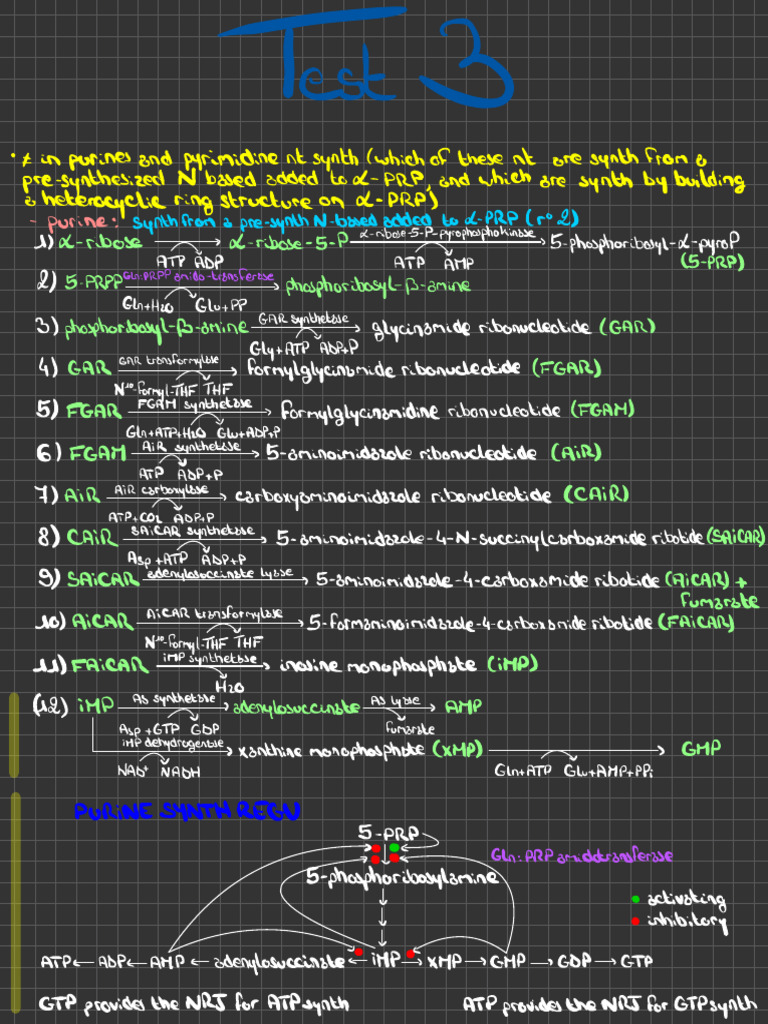 Test 3
• ≠ in purines and pyrimidine nt synth (which of these nt are synth from a
pre-synthesized N based added to α-PRP, and which are synth by building
a heterocyclic ring structure on α-PRP)
- purine: synth from a pre-synth N-based added to α-PRP (r° 2)
1) α-ribose → α-ribose-5-P α-ribose-5-P-pyrophosphokinase → 5-phosphoribosyl-α-pyroP
ATP ADP ATP AMP (5-PRP)
2) 5-PRPP Gln:PRPP amido-transferase → phosphoribosyl-β-amine
Gln+H2O Glu+PP
3) phosphoribosyl-β-amine GAR synthetase → glycinamide ribonucleotide (GAR)
Gly+ATP ADP+P
4) GAR GAR transformylase → formylglycinamide ribonucleotide (FGAR)
N¹⁰-formyl-THF THF
5) FGAR FGAM synthetase → formylglycinamidine ribonucleotide (FGAM)
Gln+ATP+H2O Glu+ADP+P
6) FGAM AiR synthetase → 5-aminoimidazole ribonucleotide (AiR)
ATP ADP+P
7) AiR AiR carboxylase → carboxyaminoimidazole ribonucleotide (CAiR)
ATP+CO2 ADP+P
8) CAiR SAiCAR synthetase → 5-aminoimidazole-4-N-succinylcarboxamide ribotide (SAiCAR)
Asp+ATP ADP+P
9) SAiCAR adenylosuccinate lyase → 5-aminoimidazole-4-carboxamide ribotide (AiCAR) +
fumarate
10) AiCAR AiCAR transformylase → 5-formaminoimidazole-4-carboxamide ribotide (FAiCAR)
N¹⁰-formyl-THF THF
11) FAiCAR iMP synthetase → inosine monophosphate (iMP)
H2O
(12) iMP AS synthetase → adenylosuccinate AS lyase → AMP
Asp+GTP GDP fumarate
iMP dehydrogenase → xanthine monophosphate (XMP) → GMP
NAD⁺ NADH Gln+ATP Glu+AMP+PPi
PURINE SYNTH REGU
5-PRP
Gln:PRP amidotransferase
5-phosphoribosylamine
• activating
• inhibitory
ATP ← ADP ← AMP ← adenylosuccinate ← iMP → XMP → GMP → GDP → GTP
GTP provides the NRJ for ATP synth ATP provides the NRJ for GTP synth